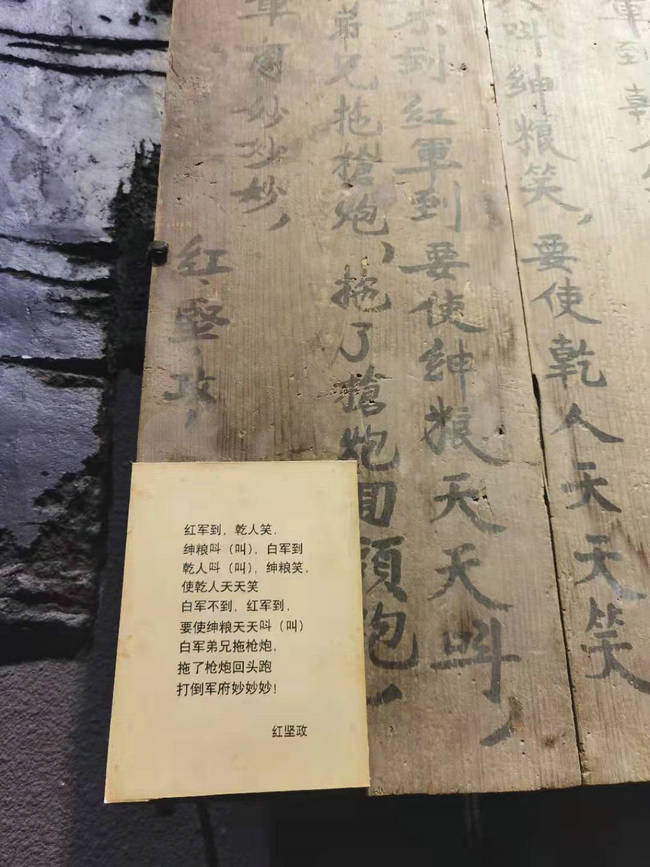 軍到乾人
人呌紳粮笑，要使乾人天天笑
不到紅軍到要使紳粮天天呌，
弟兄拖槍炮，拖了槍炮回頭跑，
軍妙妙妙，
红堅政，
红军到，乾人笑，
绅粮呌（叫），白军到
乾人呌（叫），绅粮笑，
使乾人天天笑
白军不到，红军到，
要使绅粮天天呌（叫）
白军弟兄拖枪炮，
拖了枪炮回头跑
打倒军府妙妙妙！
红坚政